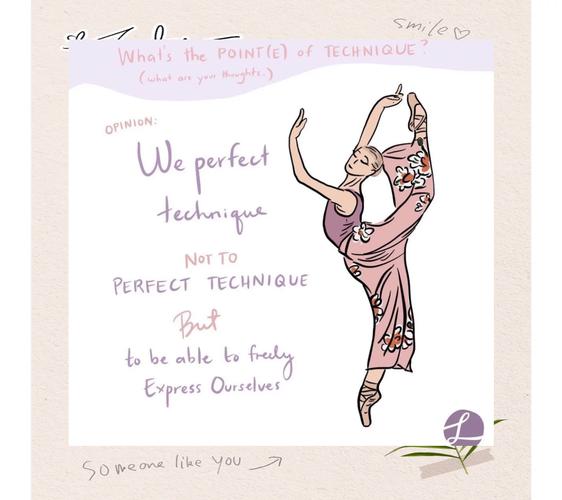 smile ♡
What's the POINT(E) of TECHNIQUE?
(what are your thoughts.)
OPINION:
We perfect
technique
NOT TO
PERFECT TECHNIQUE
But
to be able to freely
Express Ourselves
L
Someone like you →